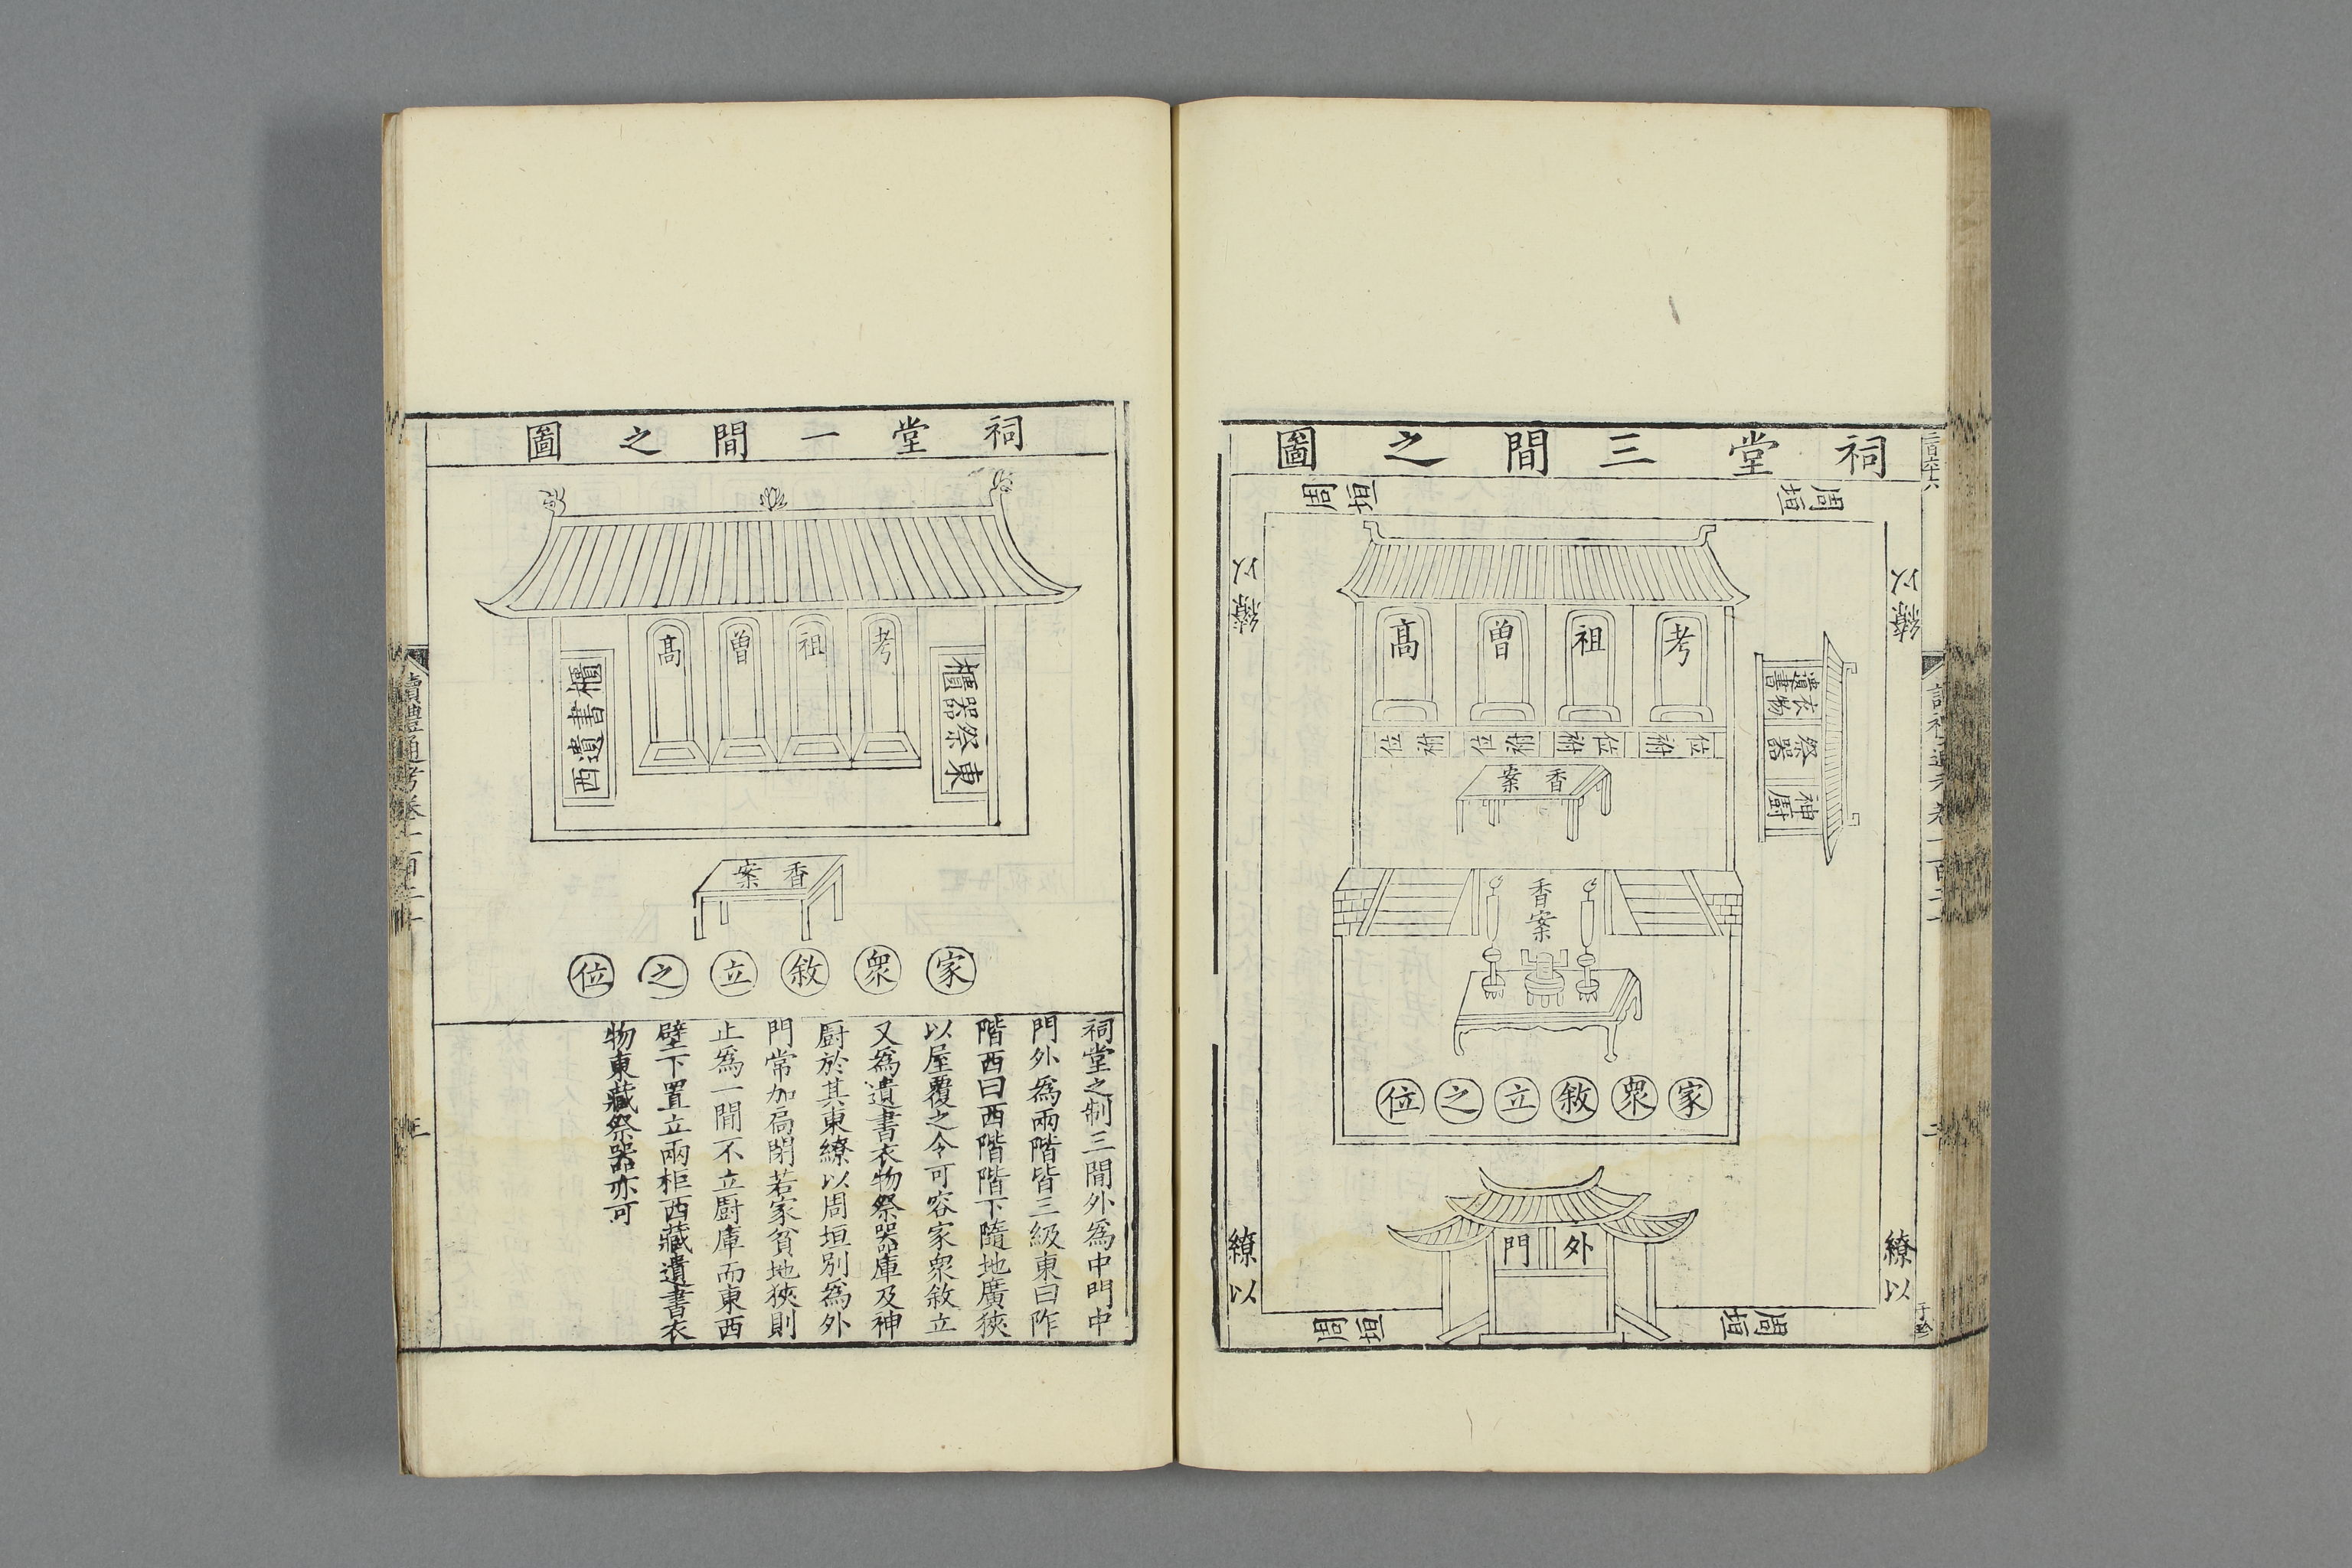 祠堂三間之圖
周垣
周垣
繚以
繚以
考
祖
曽
髙
祔位
祔位
祔位
祔位
香案
遺書衣物
祭器
神廚
香案
家衆敘立之位
外門
繚以
繚以
周垣
周垣
祠堂一間之圖
考
祖
曽
髙
東祭器櫃
西遺書櫃
香案
家衆敘立之位
祠堂之制三間外爲中門中
門外爲兩階皆三級東曰阼
階西曰西階階下隨地廣狹
以屋覆之令可容家衆敘立
又爲遺書衣物祭器庫及神
廚於其東繚以周垣別爲外
門常加扃閉若家貧地狹則
止爲一間不立廚庫而東西
壁下置立兩柜西藏遺書衣
物東藏祭器亦可
讀禮通考卷一百二十